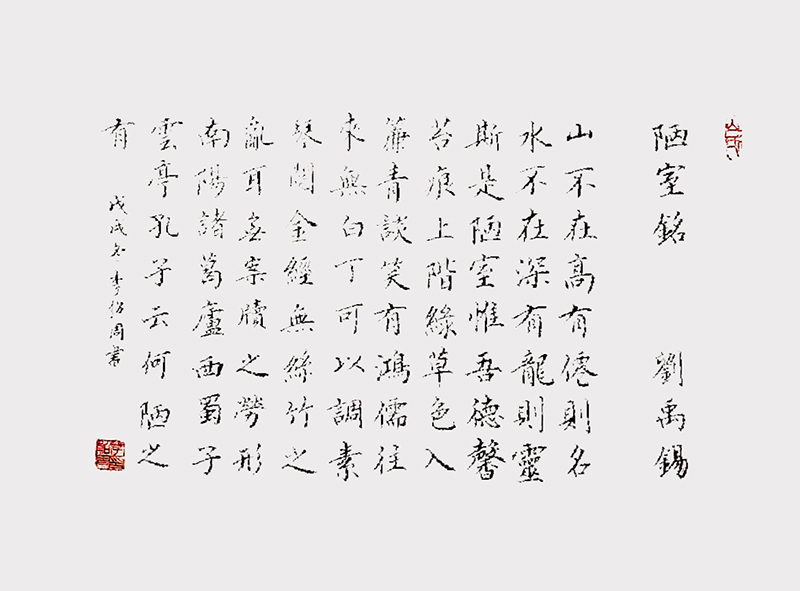 陋室銘 劉禹錫
山不在高有僊則名
水不在深有龍則靈
斯是陋室惟吾德馨
苔痕上階綠草色入
簾青談笑有鴻儒往
來無白丁可以調素
琴閱金經無絲竹之
亂耳無案牘之勞形
南陽諸葛廬西蜀子
雲亭孔子云何陋之
有
戊戌冬李紹周書